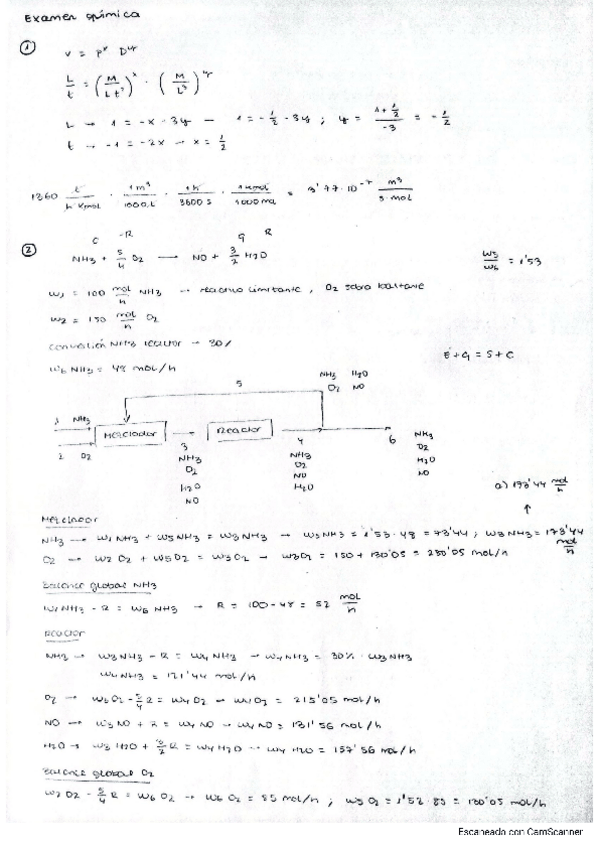 Examen química
①
v = p^x D^y
L/t = (M/(L t²))^x · (M/L³)^y
L → 1 = -x - 3y → 1 = -1/2 - 3y ; y = (1 + 1/2)/-3 = -1/2
t → -1 = -2x → x = 1/2
1360 L/(h kmol) · 1m³/1000L · 1h/3600s · 1kmol/1000mol = 3'77·10⁻⁷ m³/(s·mol)
②
C -R G R
NH3 + 5/4 O2 → NO + 3/2 H2O
W5/W6 = 1'53
W1 = 100 mol/h NH3 → reactivo limitante, O2 sobra bastante
W2 = 150 mol/h O2
Conversión NH3 reactor → 30%
W6 NH3 = 48 mol/h
E + G = S + C
5
NH3 H2O
O2 NO
1 NH3
2 O2
Mezclador
3
NH3
O2
H2O
NO
Reactor
4
NH3
O2
NO
H2O
6
NH3
O2
H2O
NO
a) 173'44 mol/h
↑
Mezclador
NH3 → W1NH3 + W5NH3 = W3NH3 → W5NH3 = 1'53·48 = 73'44 ; W3NH3 = 173'44 mol/h
O2 → W2O2 + W5O2 = W3O2 → W3O2 = 150 + 130'05 = 280'05 mol/h
Balance global NH3
W1NH3 - R = W6NH3 → R = 100-48 = 52 mol/h
Reactor
NH3 → W3NH3 - R = W4NH3 → W4NH3 = 30% · W3NH3
W4NH3 = 121'44 mol/h
O2 → W3O2 - 5/4 R = W4O2 → W4O2 = 215'05 mol/h
NO → W3NO + R = W4NO → W4NO = 131'56 mol/h
H2O → W3H2O + 3/2 R = W4H2O → W4H2O = 157'56 mol/h
Balance global O2
W2O2 - 5/4 R = W6O2 → W6O2 = 85 mol/h ; W5O2 = 1'53·85 = 130'05 mol/h
Escaneado con CamScanner